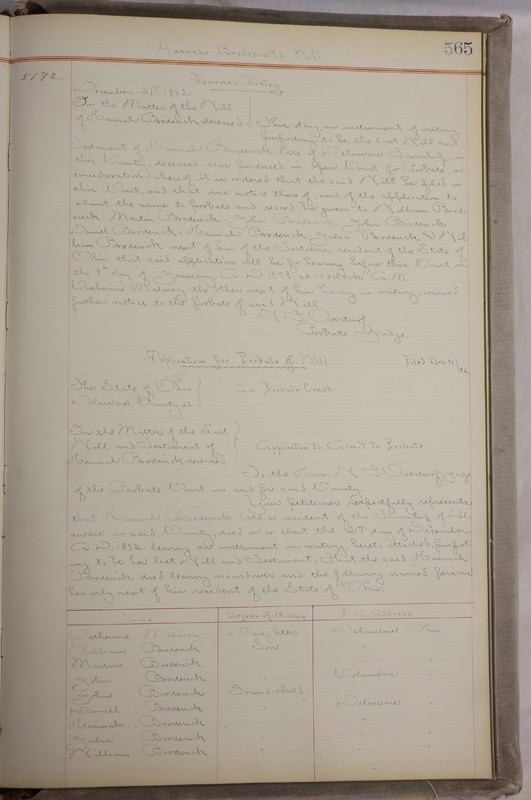 565
Hannah Broderick's Will
5182
Journal Entry
December 21st 1892
In the Matter of the Will
of Hannah Broderick deceased
This day, an instrument of writing
purporting to be the last Will and
Testament of Hannah Broderick, late of Delaware Township, in
this County, deceased was produced in open Court for Probate, on
consideration whereof it is ordered that the said Will be filed in
this Court, and that due notice thereof, and of the application to
admit the same to probate and record be given to William Brod-
erick Martin Broderick, John Broderick, John Broderick
Daniel Broderick, Hannah Broderick, Julia Broderick and Wil
liam Broderick next of kin of the Testatrix, resident of the State of
Ohio that said application will be for hearing before this Court on
the day of January A.D. 1893, at 10 o'clock A.M.
Catharine Maloney the other next of kin having in writing, waived
further notice to the probate of said Will.
Overturf
Probate Judge.
Application for Probate of Will
Filed Dec 21/92
The State of Ohio
Delaware County ss
In Probate Court
In the Matter of the Last
Will and Testament of
Hannah Broderick deceased
Application to Admit to Probate
To the Hon. Overturf Judge
of the Probate Court in and for said County
Your petitioner respectfully represents
that Hannah Broderick late a resident of the Township of Del
aware in said County, died on or about the day of December
A.D. 1892 leaving an instrument in writing, hereto attached, purport
ing to be her last Will and Testament; that the said Hannah
Broderick died leaving no widower and the following named persons
her only next of kin resident of the State of Ohio.
Name Degree of Kinship P.O. Address
Catharine Maloney Daughter Delaware Ohio
William Broderick Son " "
Martin Broderick " " "
John Broderick " Columbus "
John Broderick Grand child " "
Daniel Broderick " Delaware "
Hannah Broderick " " "
Julia Broderick " " "
William Broderick " " "